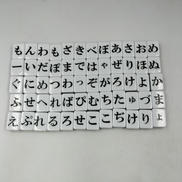 もんわもざきべぼあさおめ
ーいだぼまではゃぜりほぬ
ぐにめつわっぞがろけよか
ふせへればびむちたゅづま
えぶれるろせここぢけりょ